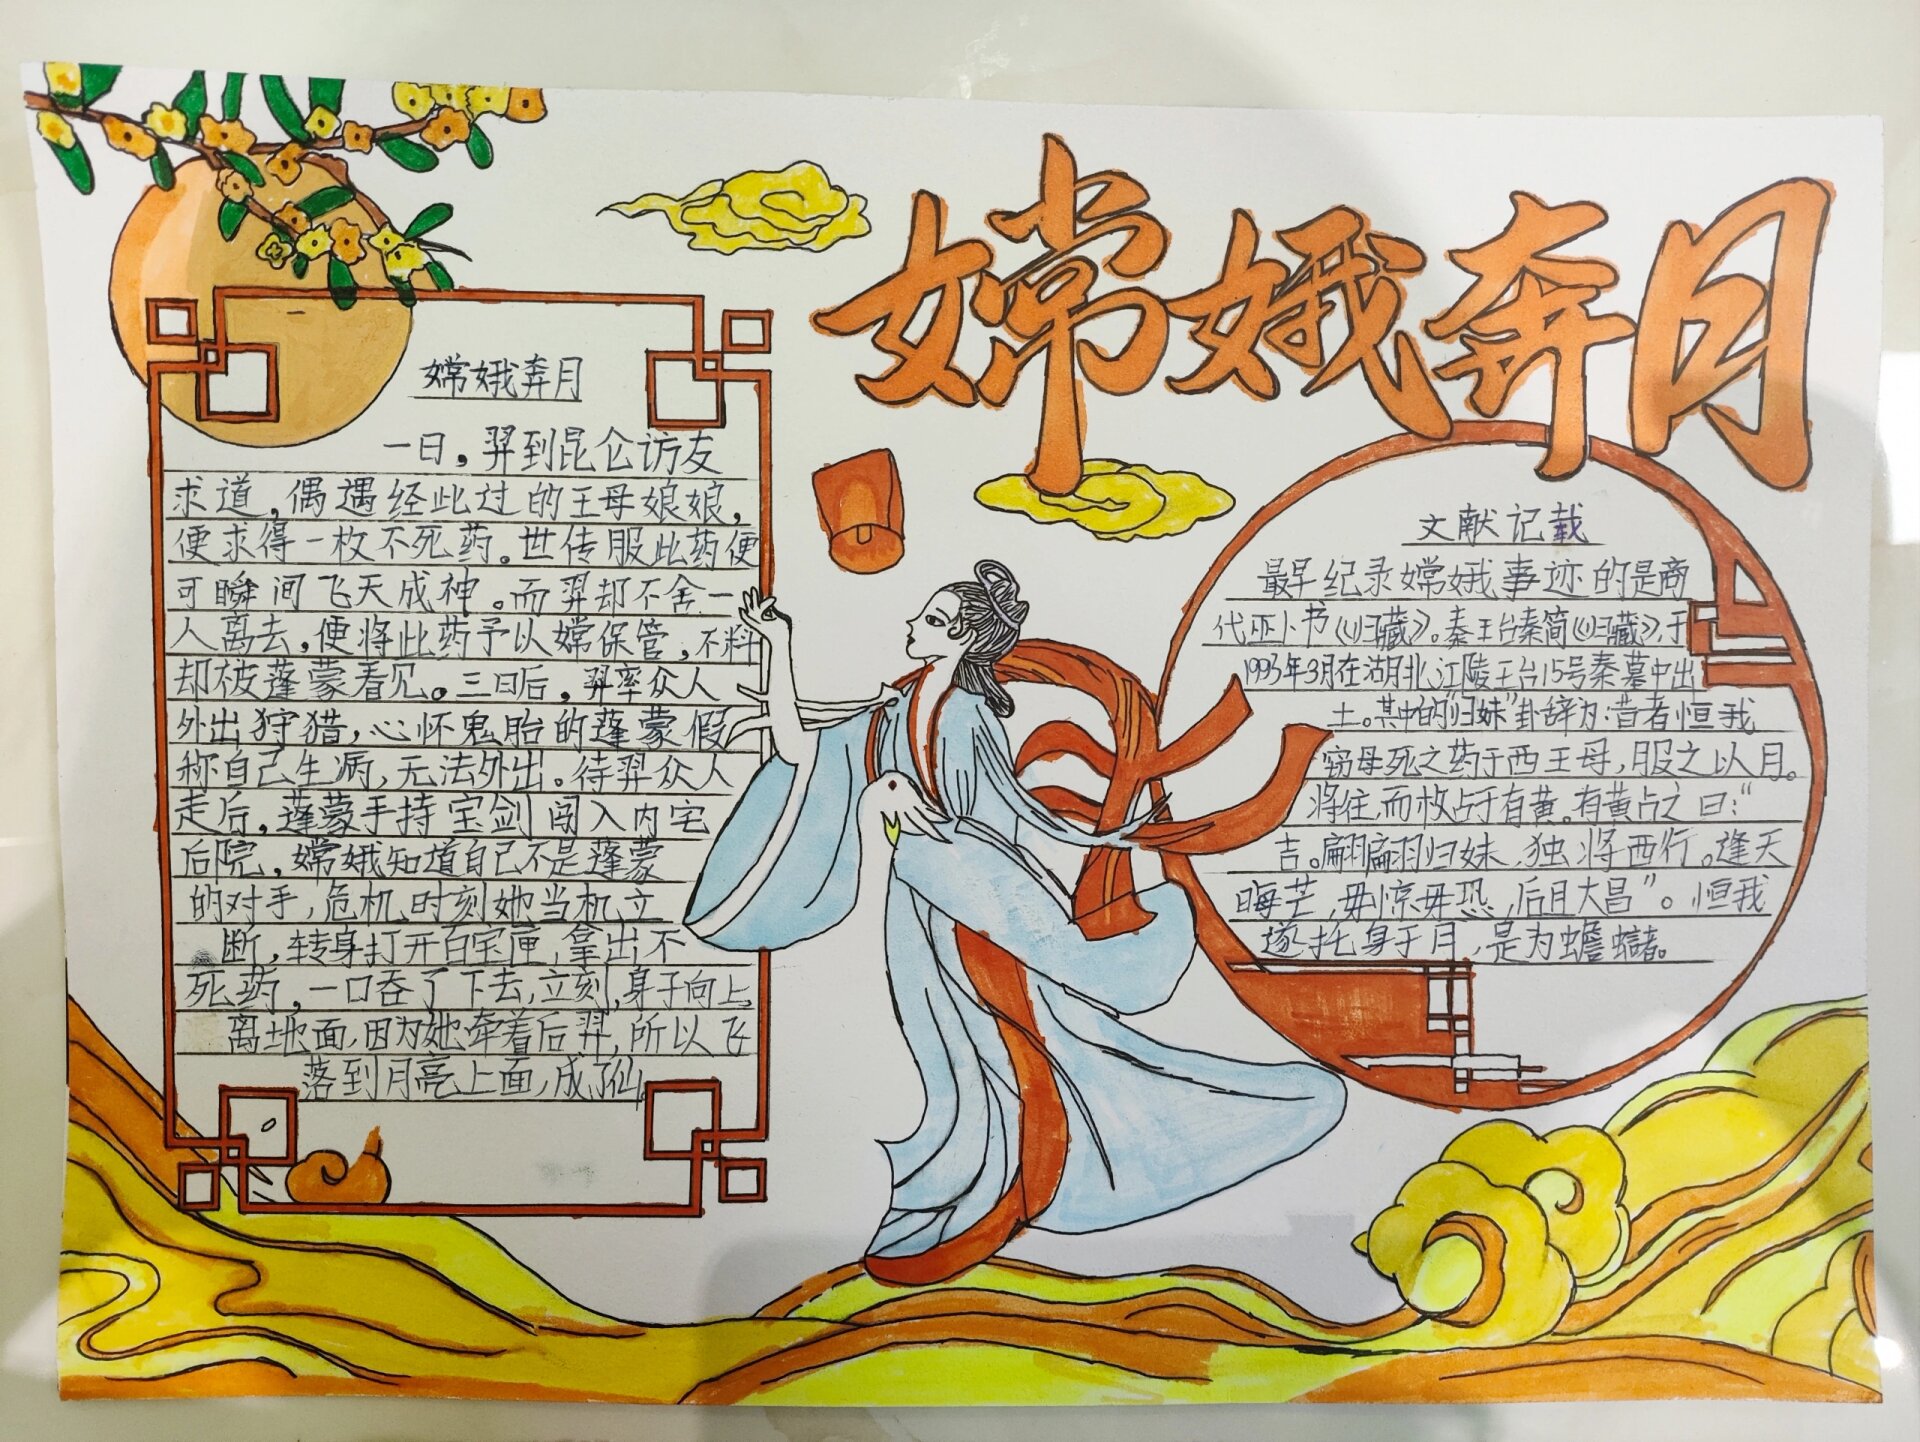 嫦娥奔月
嫦娥奔月
一日，羿到昆仑访友
求道，偶遇经此过的王母娘娘，
便求得一枚不死药。世传服此药便
可瞬间飞天成神。而羿却不舍一
人离去，便将此药予以嫦保管，不料
却被蓬蒙看见。三日后，羿率众人
外出狩猎，心怀鬼胎的蓬蒙假
称自己生病，无法外出。待羿众人
走后，蓬蒙手持宝剑闯入内宅
后院，嫦娥知道自己不是蓬蒙
的对手，危机时刻她当机立
断，转身打开百宝匣，拿出不
死药，一口吞了下去，立刻，身子向上，
离地面，因为她牵着后羿，所以飞
落到月亮上面，成了仙。
文献记载
最早纪录嫦娥事迹的是商
代巫卜书《归藏》。秦王台秦简《归藏》，于
1993年3月在湖北江陵王台15号秦墓中出
土。其中的“归妹”卦辞为：昔者恒我
窃母死之药于西王母，服之以月。
将往，而枚占于有黄。有黄占之曰：“
吉。翩翩归妹，独将西行。逢天
晦芒，毋惊毋恐，后且大昌”。恒我
遂托身于月，是为蟾蠩。